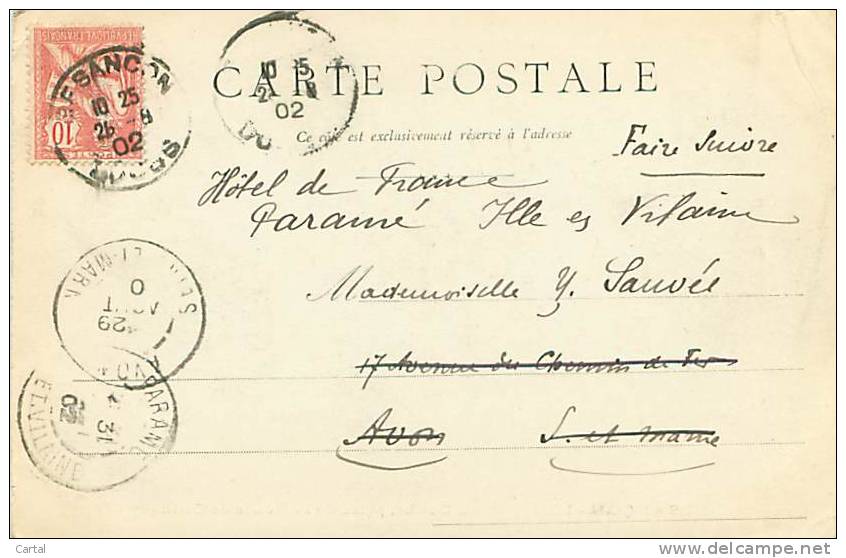 RÉPUBLIQUE FRANÇAISE
10
BESANCON
10 25
26 - 8
02
DOUBS
10 25
2
02
DOU
CARTE POSTALE
Ce côté est exclusivement réservé à l'adresse
Faire suivre
Hôtel de France
Paramé Ille es Vilaine
Mademoiselle Y. Sauvée
17 Avenue du Chemin de Fer
Avon S. et Marne
SEINE ET MARNE
29
AOUT
0
AVON
PARAMÉ
31
02
ET VILAINE
Cartal
www.delcampe.net